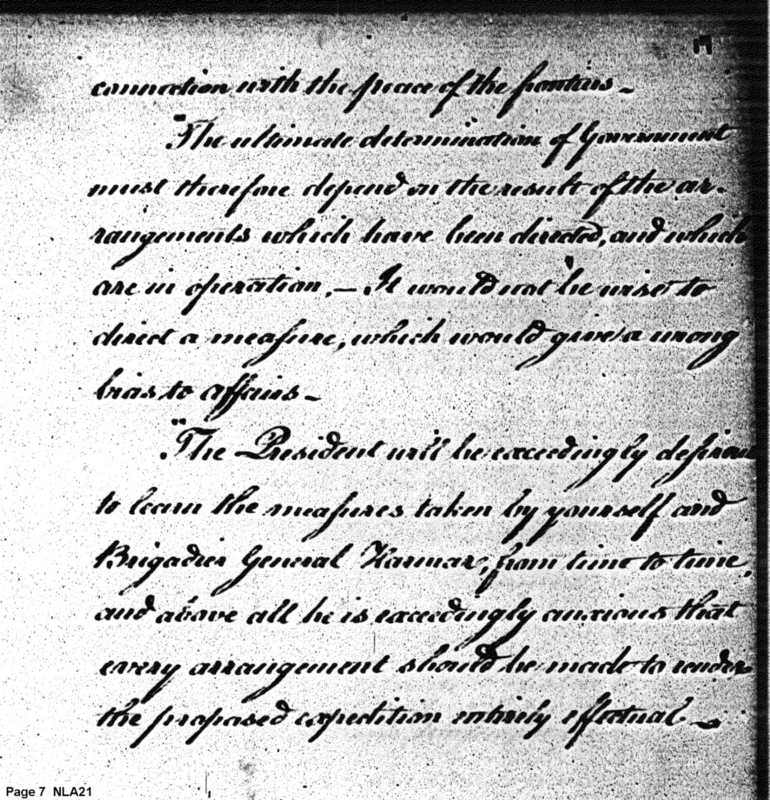 connection with the peace of the frontiers —
"The ultimate determination of Government
must therefore depend on the result of the ar-
rangements which have been directed, and which
are in operation. — It would not be wise to
direct a measure, which would give a wrong
bias to affairs —
"The President will be exceedingly desirous
to learn the measures taken by yourself and
Brigadier General Harmar, from time to time,
and above all he is exceedingly anxious that
every arrangement should be made to render
the proposed expedition entirely effectual —
Page 7 NLA21